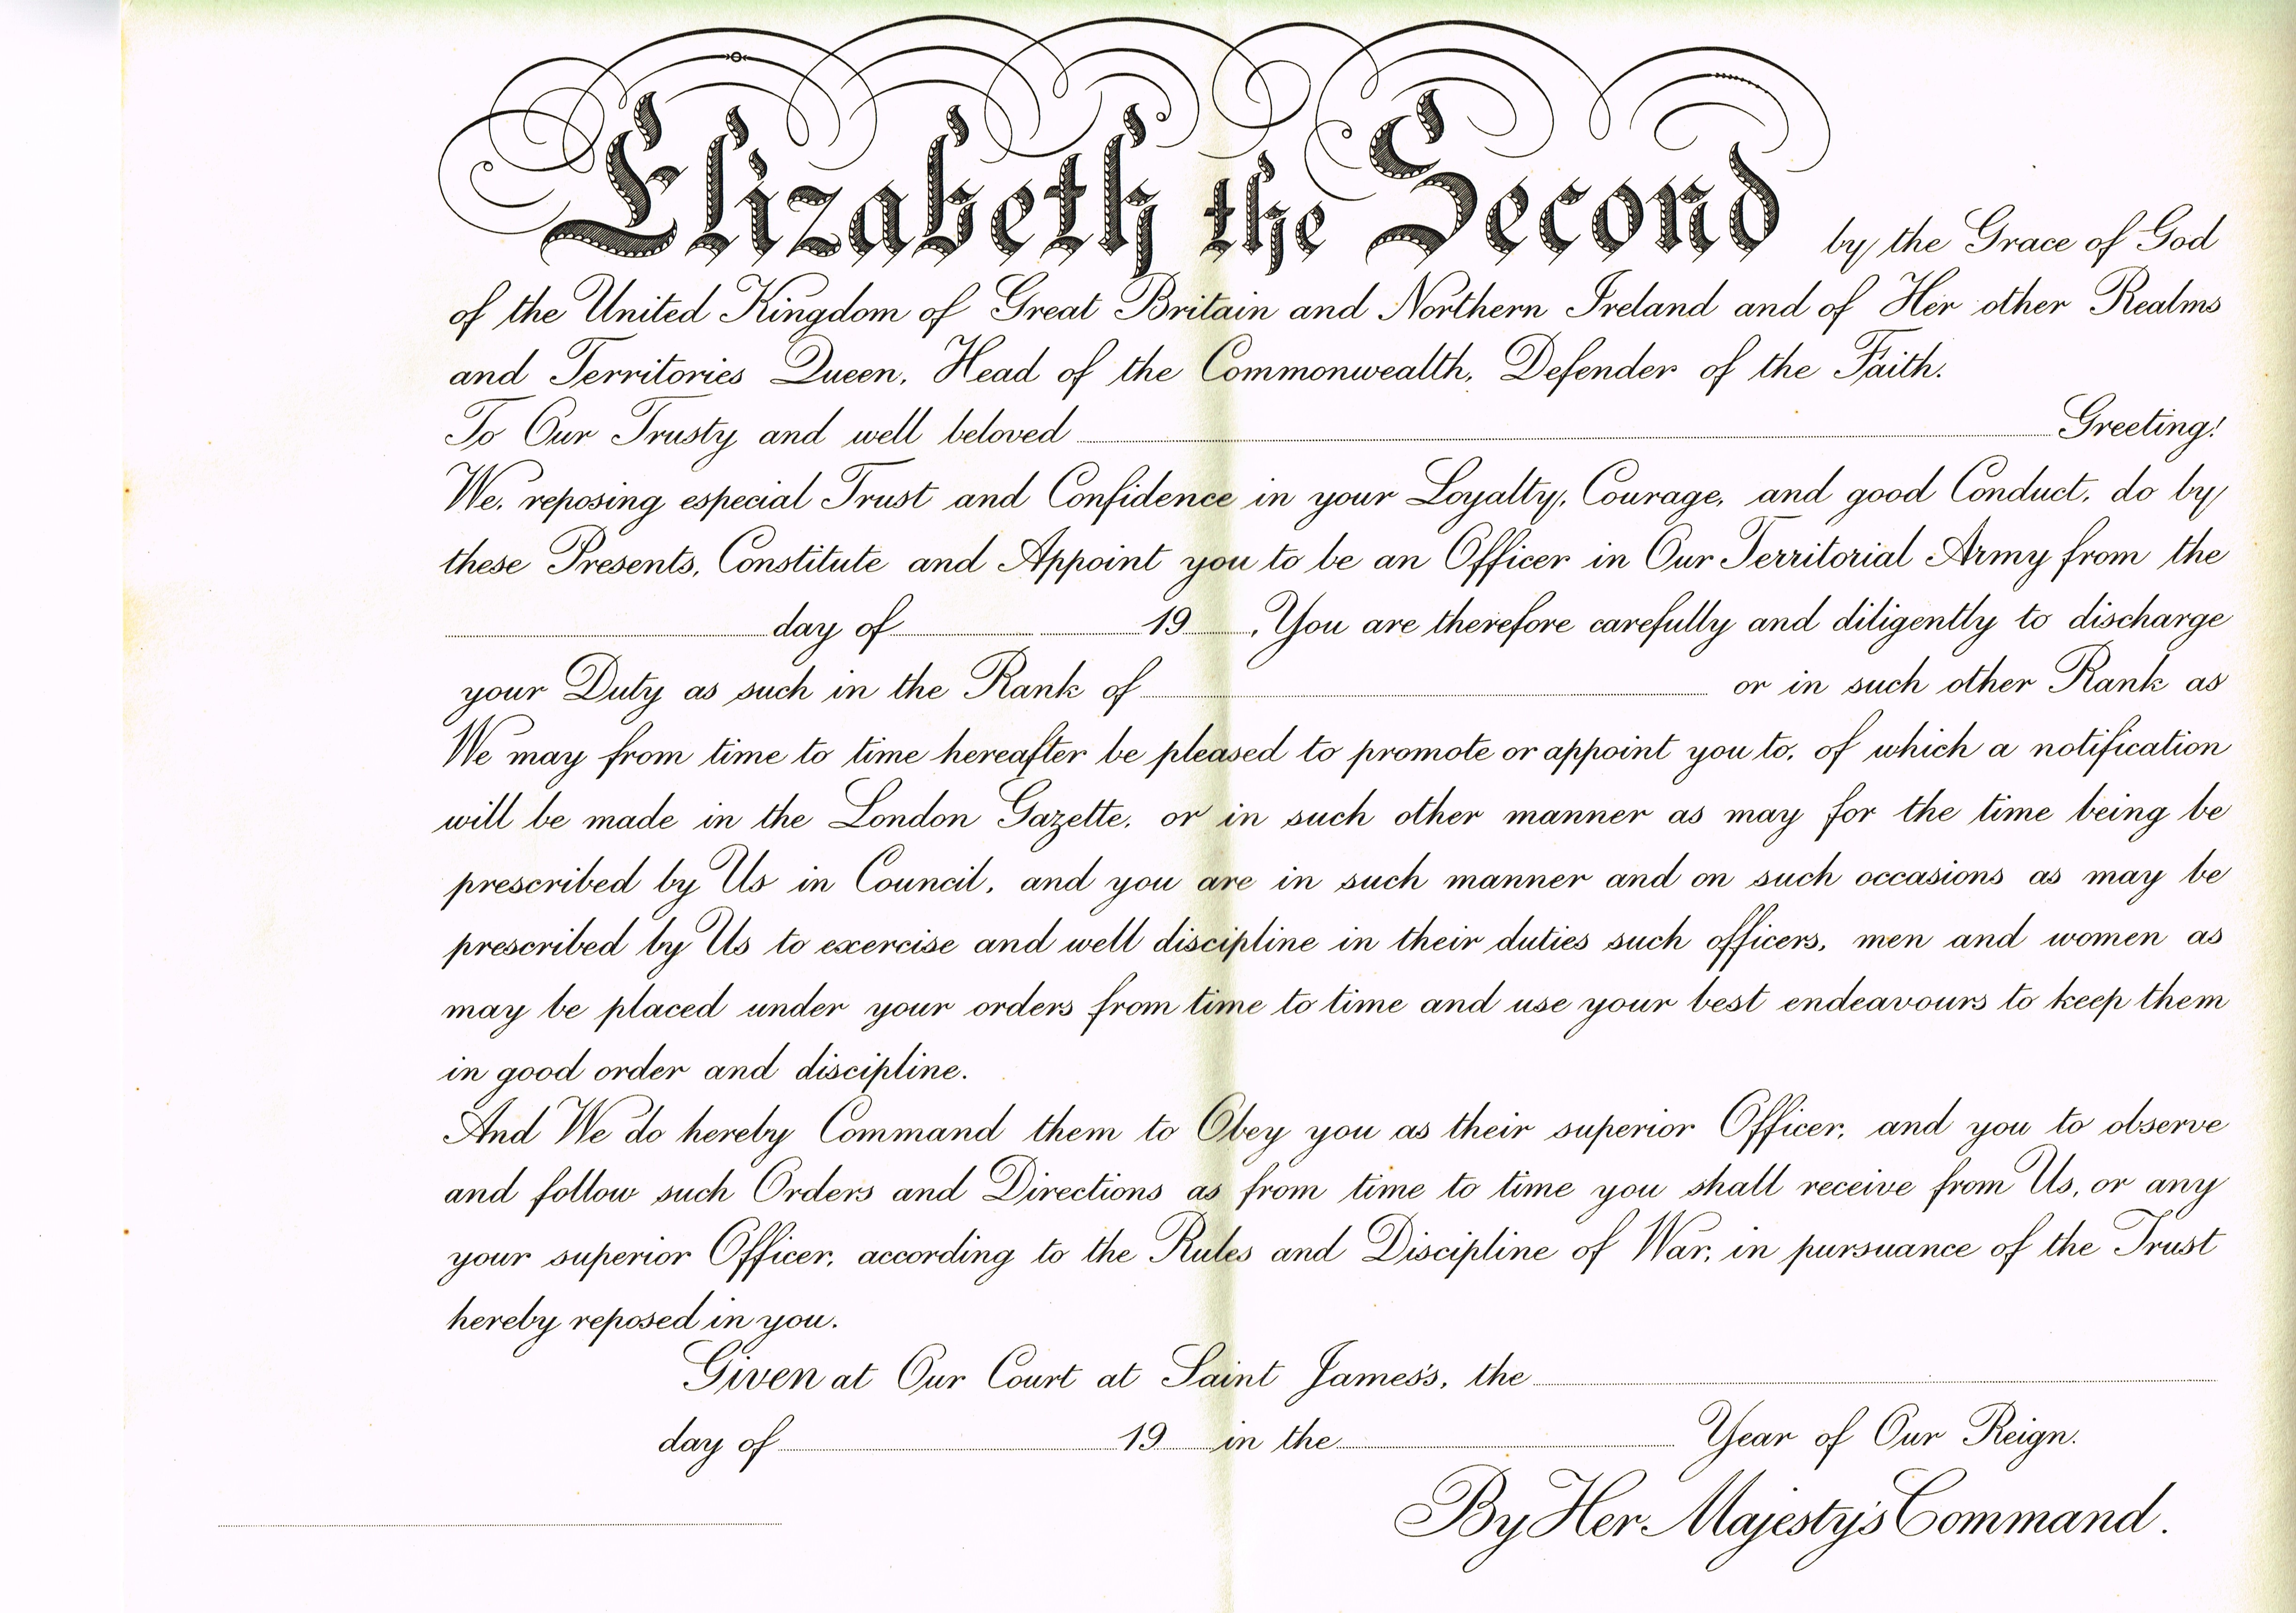 Elizabeth the Second by the Grace of God
of the United Kingdom of Great Britain and Northern Ireland and of Her other Realms
and Territories Queen, Head of the Commonwealth, Defender of the Faith.
To Our Trusty and well beloved Greeting!
We, reposing especial Trust and Confidence in your Loyalty, Courage, and good Conduct, do by
these Presents, Constitute and Appoint you to be an Officer in Our Territorial Army from the
day of 19 , You are therefore carefully and diligently to discharge
your Duty as such in the Rank of or in such other Rank as
We may from time to time hereafter be pleased to promote or appoint you to, of which a notification
will be made in the London Gazette, or in such other manner as may for the time being be
prescribed by Us in Council, and you are in such manner and on such occasions as may be
prescribed by Us to exercise and well discipline in their duties such officers, men and women as
may be placed under your orders from time to time and use your best endeavours to keep them
in good order and discipline.
And We do hereby Command them to Obey you as their superior Officer, and you to observe
and follow such Orders and Directions as from time to time you shall receive from Us, or any
your superior Officer, according to the Rules and Discipline of War, in pursuance of the Trust
hereby reposed in you.
Given at Our Court at Saint James's, the
day of 19 in the Year of Our Reign.
By Her Majesty's Command.